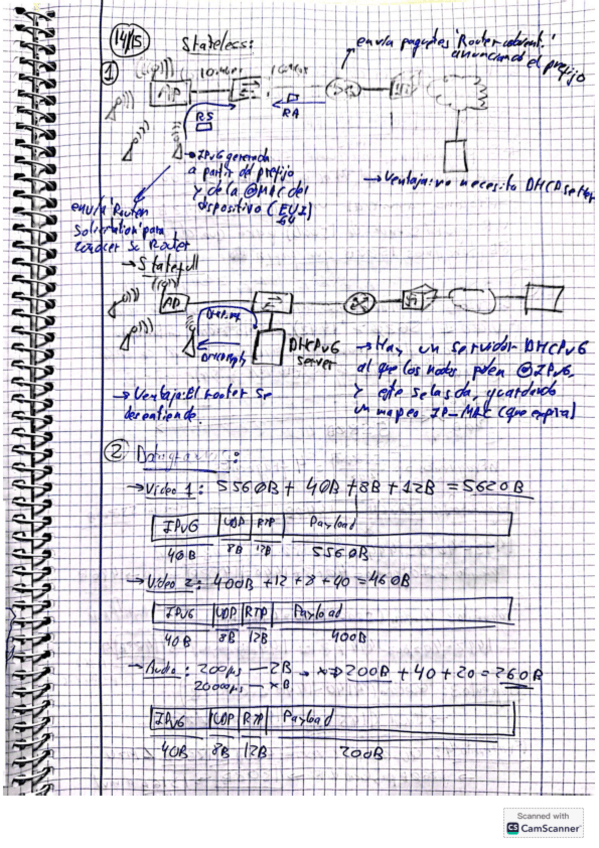 14/15
Stateless:
envía paquetes 'Router advert.'
anunciando el prefijo
1
AP
RS
RA
→ IPv6 generada
a partir del prefijo
y de la @MAC del
dispositivo (EUI
64
→ Ventaja: no necesito DHCP server
envía 'Router
Solicitation' para
conocer su Router
→ Statefull
AP
DHCPv6
server
→ Hay un servidor DHCPv6
al que los nodos piden @IPv6,
y este se las da, guardando
un mapeo IP-MAC (que expira)
→ Ventaja: El router se
desentiende.
2 Datagramas:
→ Video 1: 5560B + 40B + 8B + 12B = 5620B
IPv6 UDP RTP Payload
40B 8B 12B 5560B
→ Video 2: 400B + 12 + 8 + 40 = 460B
IPv6 UDP RTP Payload
40B 8B 12B 400B
→ Audio: 200µs — 2B → x = 200B + 40 + 20 = 260B
20000µs — xB
IPv6 UDP RTP Payload
40B 8B 12B 200B
Scanned with
CS CamScanner